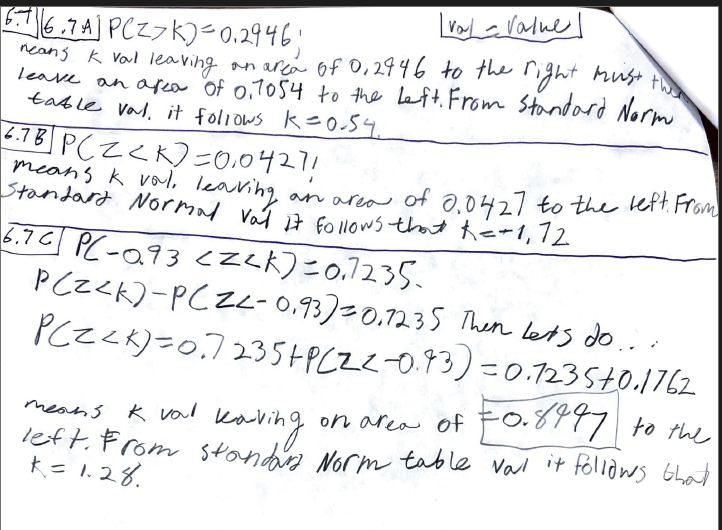 6.7 6.7A P(Z>K)=0.2946; val = value
means k val leaving an area of 0.2946 to the right must then
leave an area of 0.7054 to the left. From Standard Norm
table val. it follows K=0.54.
6.7B P(Z<K)=0.0427;
means k val. leaving an area of 0.0427 to the left. From
Standard Normal val it follows that K=-1.72
6.7C P(-0.93<Z<K)=0.7235.
P(Z<K)-P(Z<-0.93)=0.7235 Then Lets do...
P(Z<K)=0.7235+P(Z<-0.93)=0.7235+0.1762
means k val leaving an area of =0.8997 to the
left. From standard Norm table val it follows that
K=1.28.